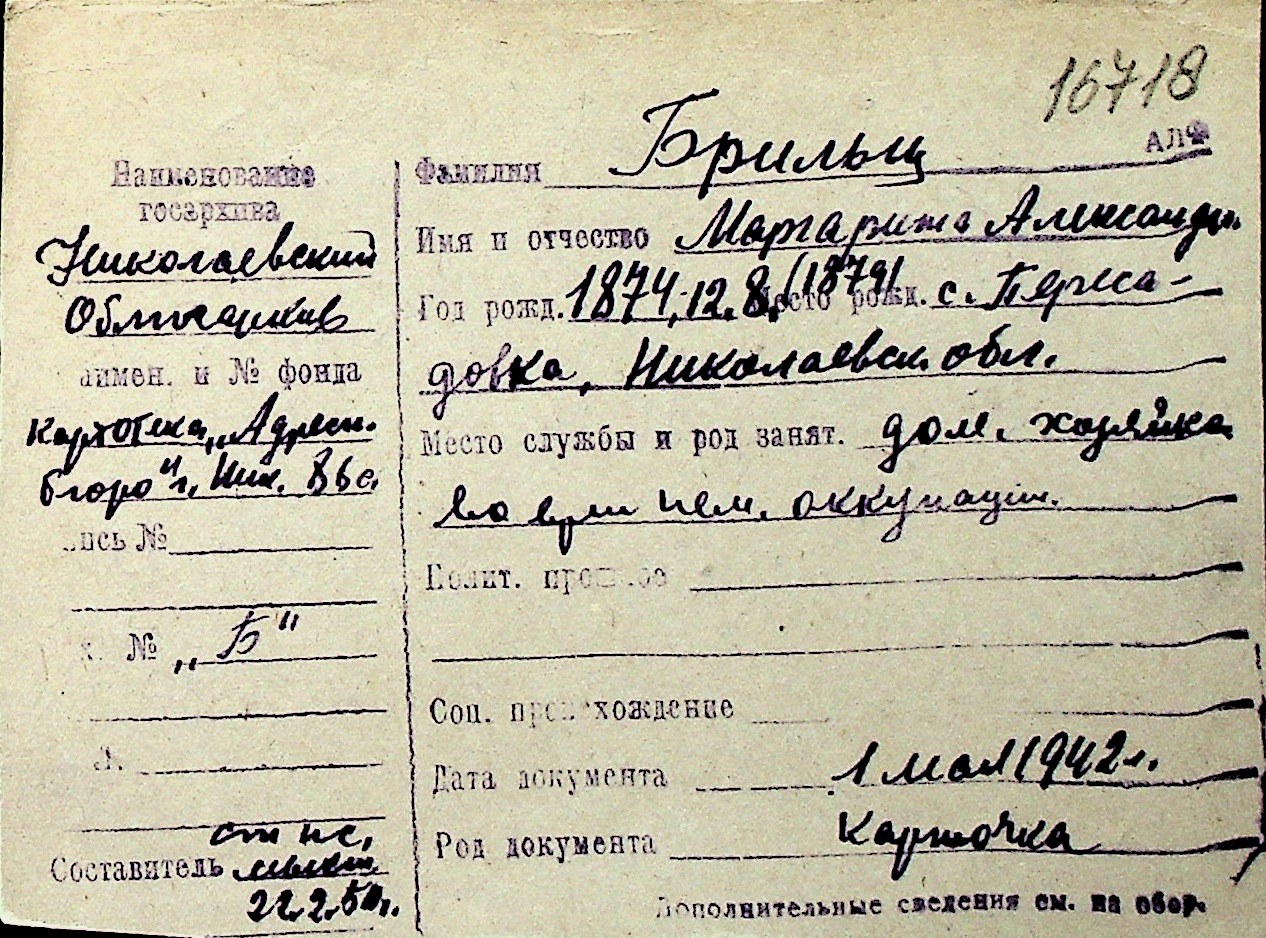 16718
АЛФ
Наименование
госархива
Николаевский
Облгосархив
аимен. и № фонда
картотека „Адресн.
бюро" г. Ник.
пись №
№ „Б"
Составитель
22.2.50г.
Фамилия Брильц
Имя и отчество Маргарита Александр.
Год рожд. 1874, 12.8. (1879) Место рожд. с. Переса-
довка, Николаевск. обл.
Место службы и род занят. дом. хозяйка
во врем нем. оккупации.
Полит. прошлое
Соц. происхождение
Дата документа 1 мая 1942 г.
Род документа карточка
Дополнительные сведения см. на обор.